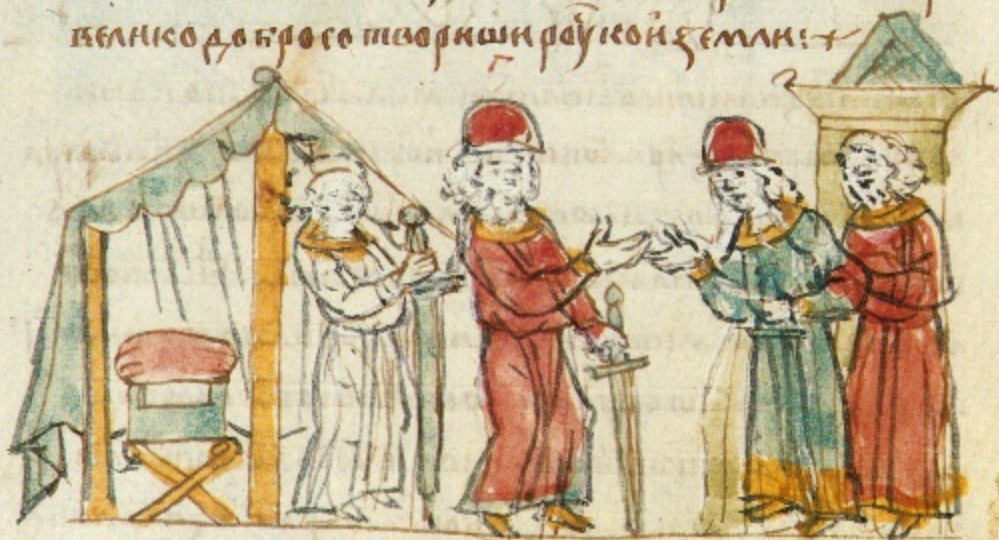 велико доброго твориши роускои земли:+
г